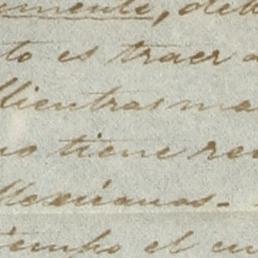 umente, deb
to es traer a
Mientras ma
no tiene re
Mexicanos.-
iempo el en